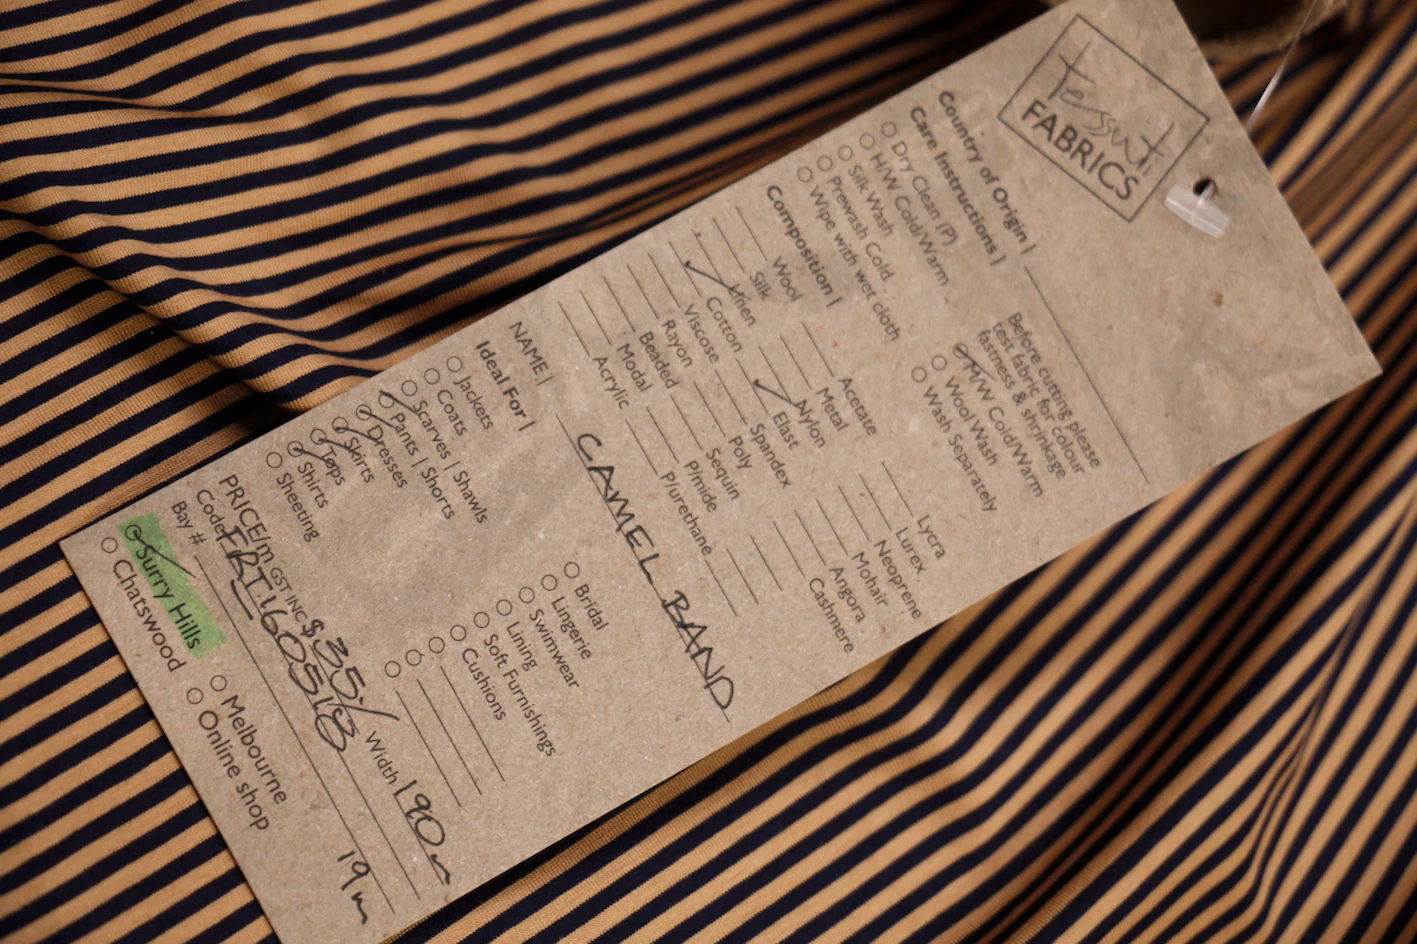 tessuti
FABRICS
Country of Origin |
Care Instructions |
Dry Clean (P)
H/W Cold/Warm
Silk Wash
Prewash Cold
Wipe with wet cloth
Before cutting please
test fabric for colour
fastness & shrinkage
M/W Cold/Warm
Wool Wash
Wash Separately
Composition |
Wool
Silk
Linen
Cotton
Viscose
Rayon
Beaded
Modal
Acrylic
Acetate
Metal
Nylon
Elast
Spandex
Poly
Sequin
P/mide
P/urethane
Lycra
Lurex
Neoprene
Mohair
Angora
Cashmere
NAME | CAMEL BAND
Ideal For |
Jackets
Coats
Scarves | Shawls
Pants | Shorts
Dresses
Skirts
Tops
Shirts
Sheeting
Bridal
Lingerie
Swimwear
Lining
Soft Furnishings
Cushions
PRICE/m GST INC $35/ Width 190m
Code FRT160518
Bay # 19m
Surry Hills
Chatswood
Melbourne
Online shop